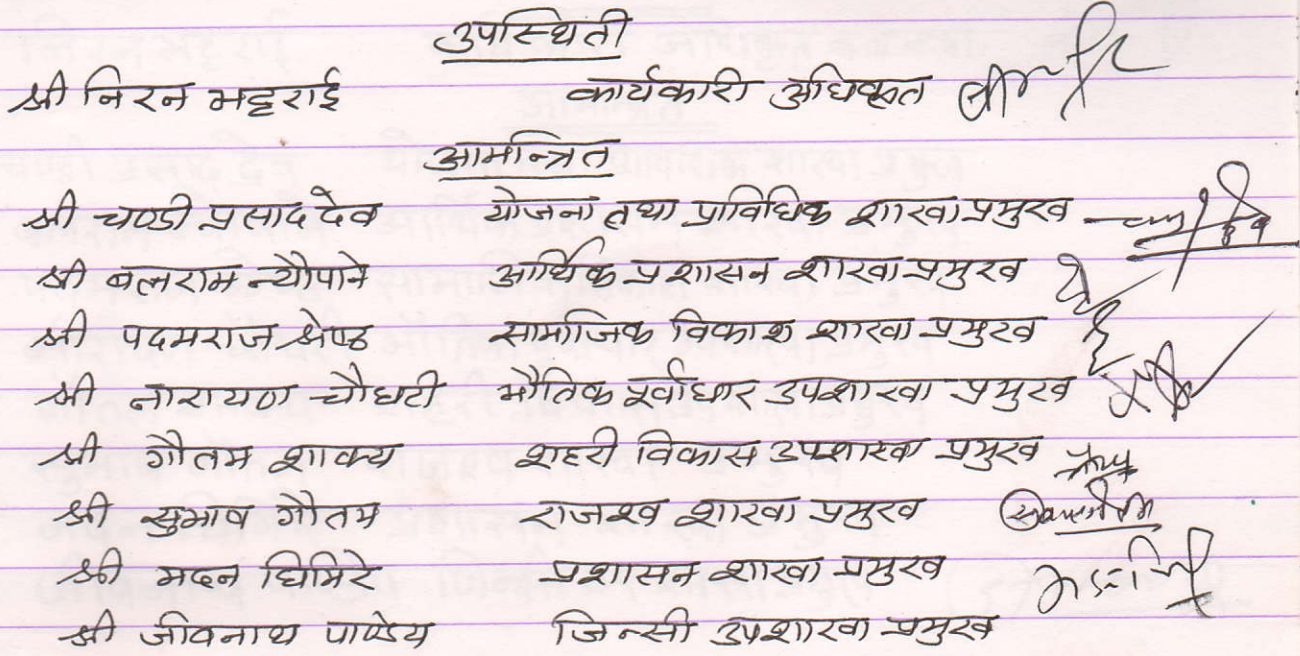 उपस्थिती
श्री निरन भट्टराई कार्यकारी अधिकृत
आमन्त्रित
श्री चण्डी प्रसाद देव योजना तथा प्राविधिक शाखा प्रमुख
श्री बलराम न्यौपाने आर्थिक प्रशासन शाखा प्रमुख
श्री पदमराज श्रेष्ठ सामाजिक विकाश शाखा प्रमुख
श्री नारायण चौधरी भौतिक पूर्वाधार उपशाखा प्रमुख
श्री गौतम शाक्य शहरी विकास उपशाखा प्रमुख
श्री सुभाष गौतम राजश्व शाखा प्रमुख
श्री मदन घिमिरे प्रशासन शाखा प्रमुख
श्री जीवनाथ पाण्डेय जिन्सी उपशाखा प्रमुख